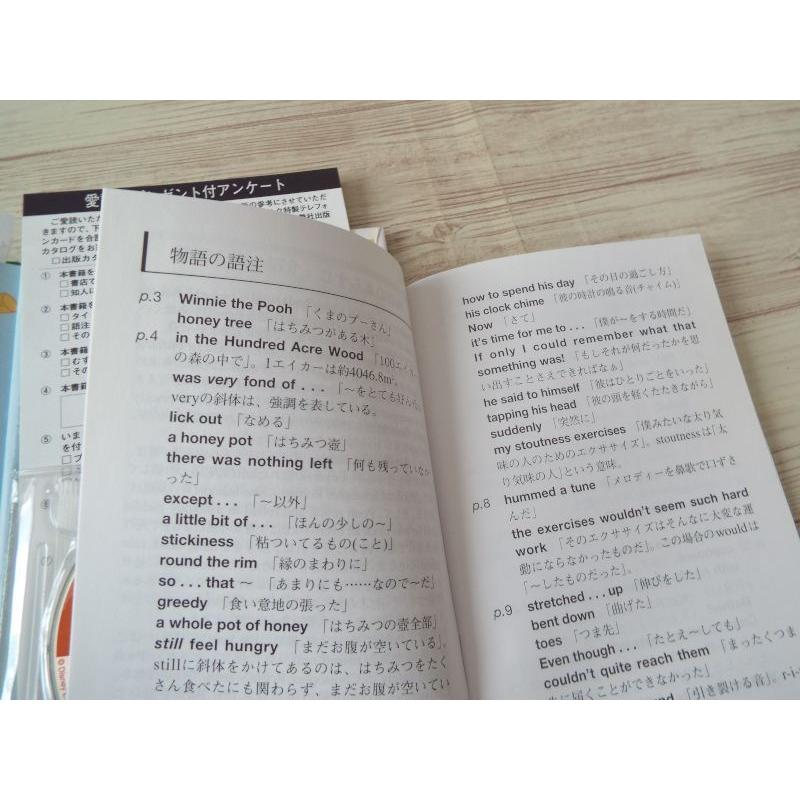 ゼント付アンケート
ご愛読いただ
の参考にさせていただ
きますので、下
ク特製テレフォ
ンカードを合
カタログをお
□出版カタ
① 本書籍を
□書店で
□知人に
② 本書籍を
□タイ
□語注
□その
③ 本書籍を
□むず
□その
④ 本書籍
⑤ いま
を付
© Disney
物語の語注
p.3 Winnie the Pooh 「くまのプーさん」
honey tree 「はちみつがある木」
p.4 in the Hundred Acre Wood 「100エイカー
の森の中で」。1エイカーは約4046.8m²。
was very fond of . . . 「〜をとても好んだ」
veryの斜体は、強調を表している。
lick out 「なめる」
a honey pot 「はちみつ壺」
there was nothing left 「何も残っていなか
った」
except . . . 「〜以外」
a little bit of . . . 「ほんの少しの〜」
stickiness 「粘ついてるもの(こと)」
round the rim 「縁のまわりに」
so . . . that 〜 「あまりにも……なので〜だ」
greedy 「食い意地の張った」
a whole pot of honey 「はちみつの壺全部」
still feel hungry 「まだお腹が空いている」。
stillに斜体をかけてあるのは、はちみつをたく
さん食べたにも関わらず、まだお腹が空いてい
how to spend his day 「その日の過ごし方」
his clock chime 「彼の時計の鳴る音(チャイム)」
Now 「さて」
it's time for me to . . . 「僕が〜をする時間だ」
If only I could remember what that
something was! 「もしそれが何だったかを思
い出すことさえできればなぁ」
he said to himself 「彼はひとりごとをいった」
tapping his head 「彼の頭を軽くたたきながら」
suddenly 「突然に」
my stoutness exercises 「僕みたいな太り気
味の人のためのエクササイズ」。stoutnessは「太
り気味の人」という意味。
p.8 hummed a tune 「メロディーを鼻歌で口ずさ
んだ」
the exercises wouldn't seem such hard
work 「そのエクササイズはそんなに大変な運
動にならなかったものだ」。この場合のwouldは
「〜したものだった」。
p.9 stretched . . . up 「伸びをした」
bent down 「曲げた」
toes 「つま先」
Even though . . . 「たとえ〜しても」
couldn't quite reach them 「まったくつま
先に届くことができなかった」
「引き裂ける音」。r-i-